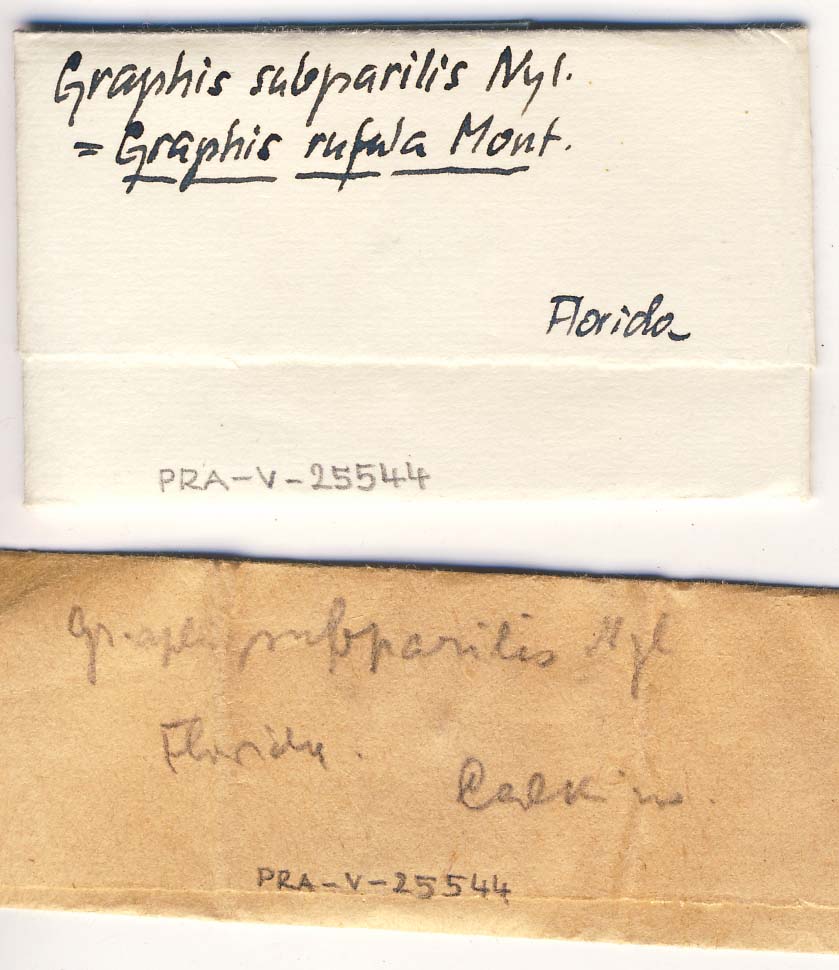 Graphis subparilis Nyl.
= Graphis rufula Mont.
Florida
PRA-V-25544
Graphis subparilis Nyl
Florida.
Calkins.
PRA-V-25544